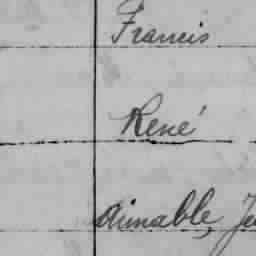 Francis
René
Aimable, Je